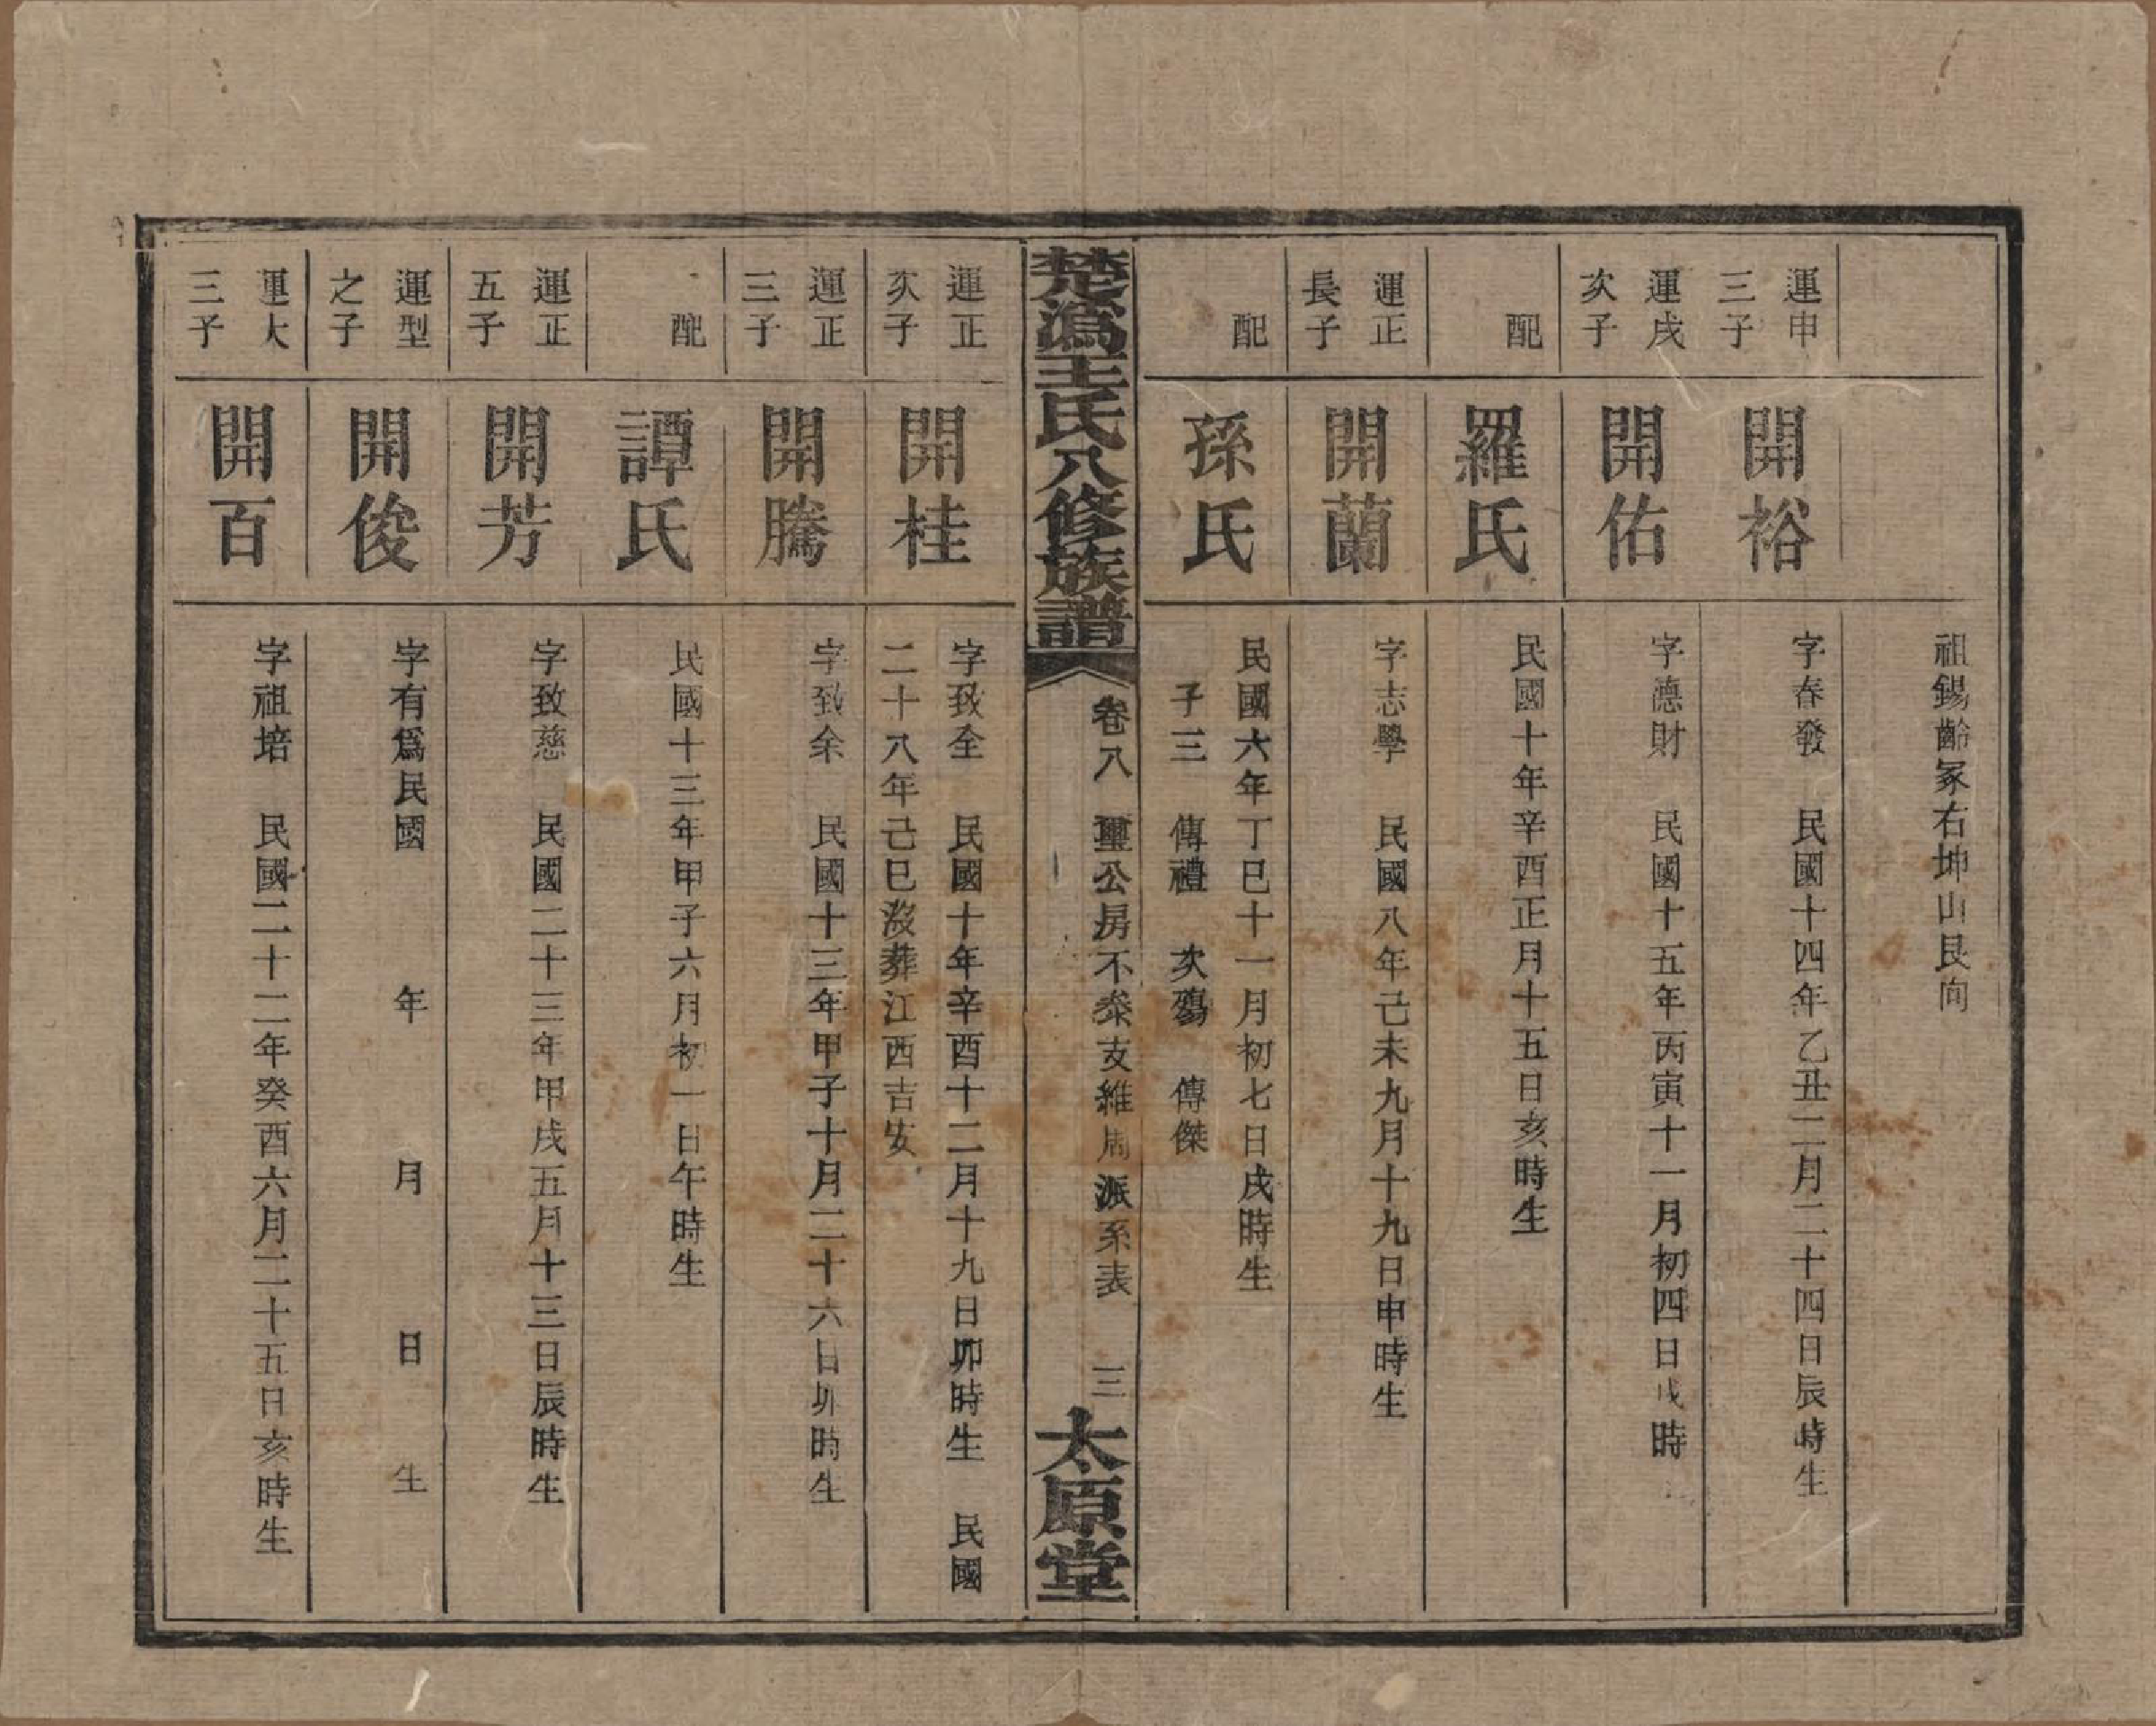 祖錫齡冢右坤山艮向
運申
三子
開裕
字春發　民國十四年乙丑二月二十四日辰時生
運戌
次子
開佑
字德財　民國十五年丙寅十一月初四日戌時
配
羅氏
民國十年辛酉正月十五日亥時生
運正
長子
開蘭
字志學　民國八年己未九月十九日申時生
配
孫氏
民國六年丁巳十一月初七日戌時生
子三　傳禮　次殤　傳傑
楚溈王氏八修族譜
卷八　璽公房不泰支維周派系表　三
太原堂
運正
次子
開桂
字致全　民國十年辛酉十二月十九日卯時生　民國
二十八年己巳歿葬江西吉安
運正
三子
開騰
字致余　民國十三年甲子十月二十六日卯時生
配
譚氏
民國十三年甲子六月初一日午時生
運正
五子
開芳
字致慈　民國二十三年甲戌五月十三日辰時生
運型
之子
開俊
字有爲民國　　年　　月　　日　　生
運大
三子
開百
字祖培　民國二十二年癸酉六月二十五日亥時生